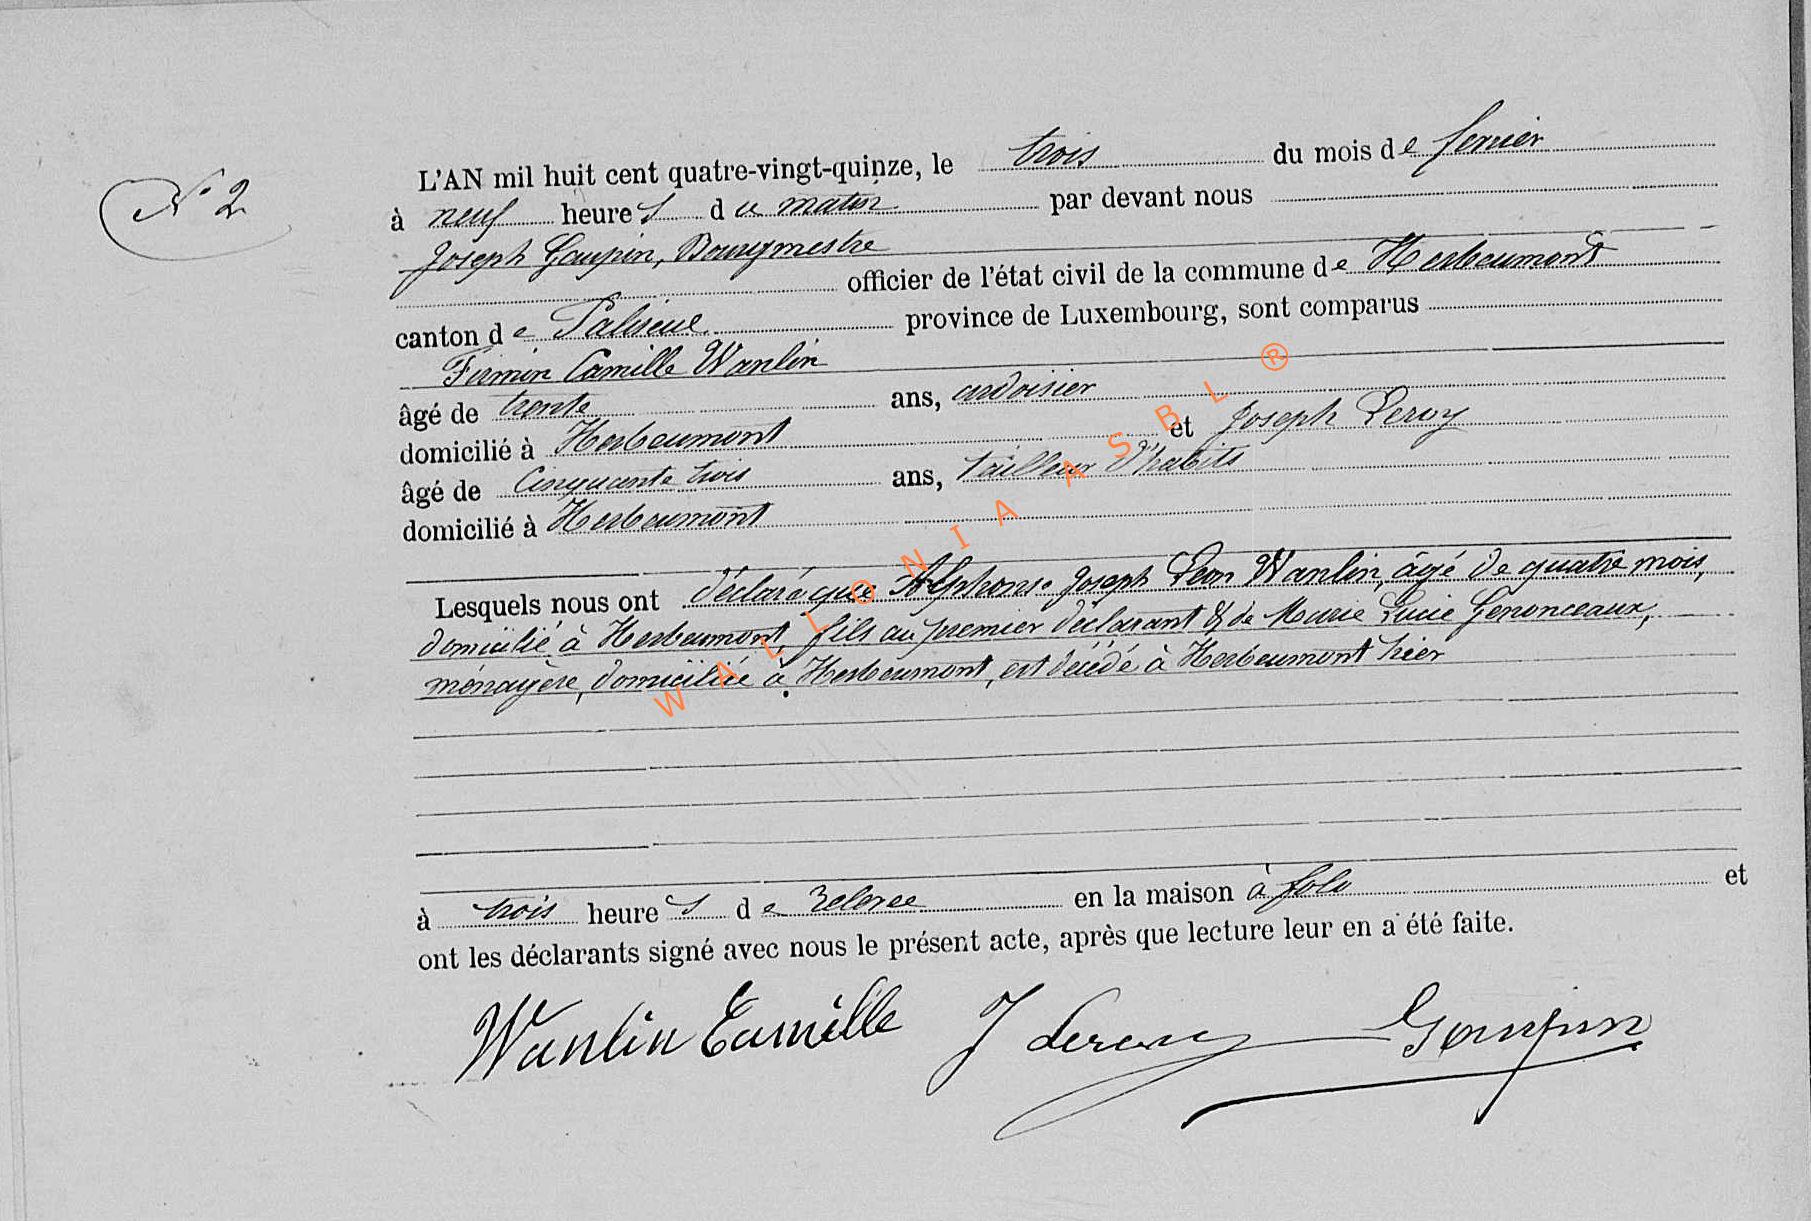 N° 2
L'AN mil huit cent quatre-vingt-quinze, le trois du mois de fevrier
à neuf heures du matin par devant nous
Joseph Goupin, Bourgmestre
officier de l'état civil de la commune de Herbeumont
canton de Paliseul province de Luxembourg, sont comparus
Firmin Camille Wanlin
âgé de trente ans, ardoisier
domicilié à Herbeumont et Joseph Leroy
âgé de Cinquante trois ans, tailleur d'habits
domicilié à Herbeumont
Lesquels nous ont déclaré que Alphonse Joseph Leon Wanlin, âgé de quatre mois,
domicilié à Herbeumont, fils du premier déclarant & de Marie Lucie Genonceaux,
ménagère, domiciliée à Herbeumont, est décédé à Herbeumont hier
à trois heures de relevee en la maison à folo et
ont les déclarants signé avec nous le présent acte, après que lecture leur en a été faite.
Wanlin Camille J Leroy Goupin
WALLONIA ASBL ®